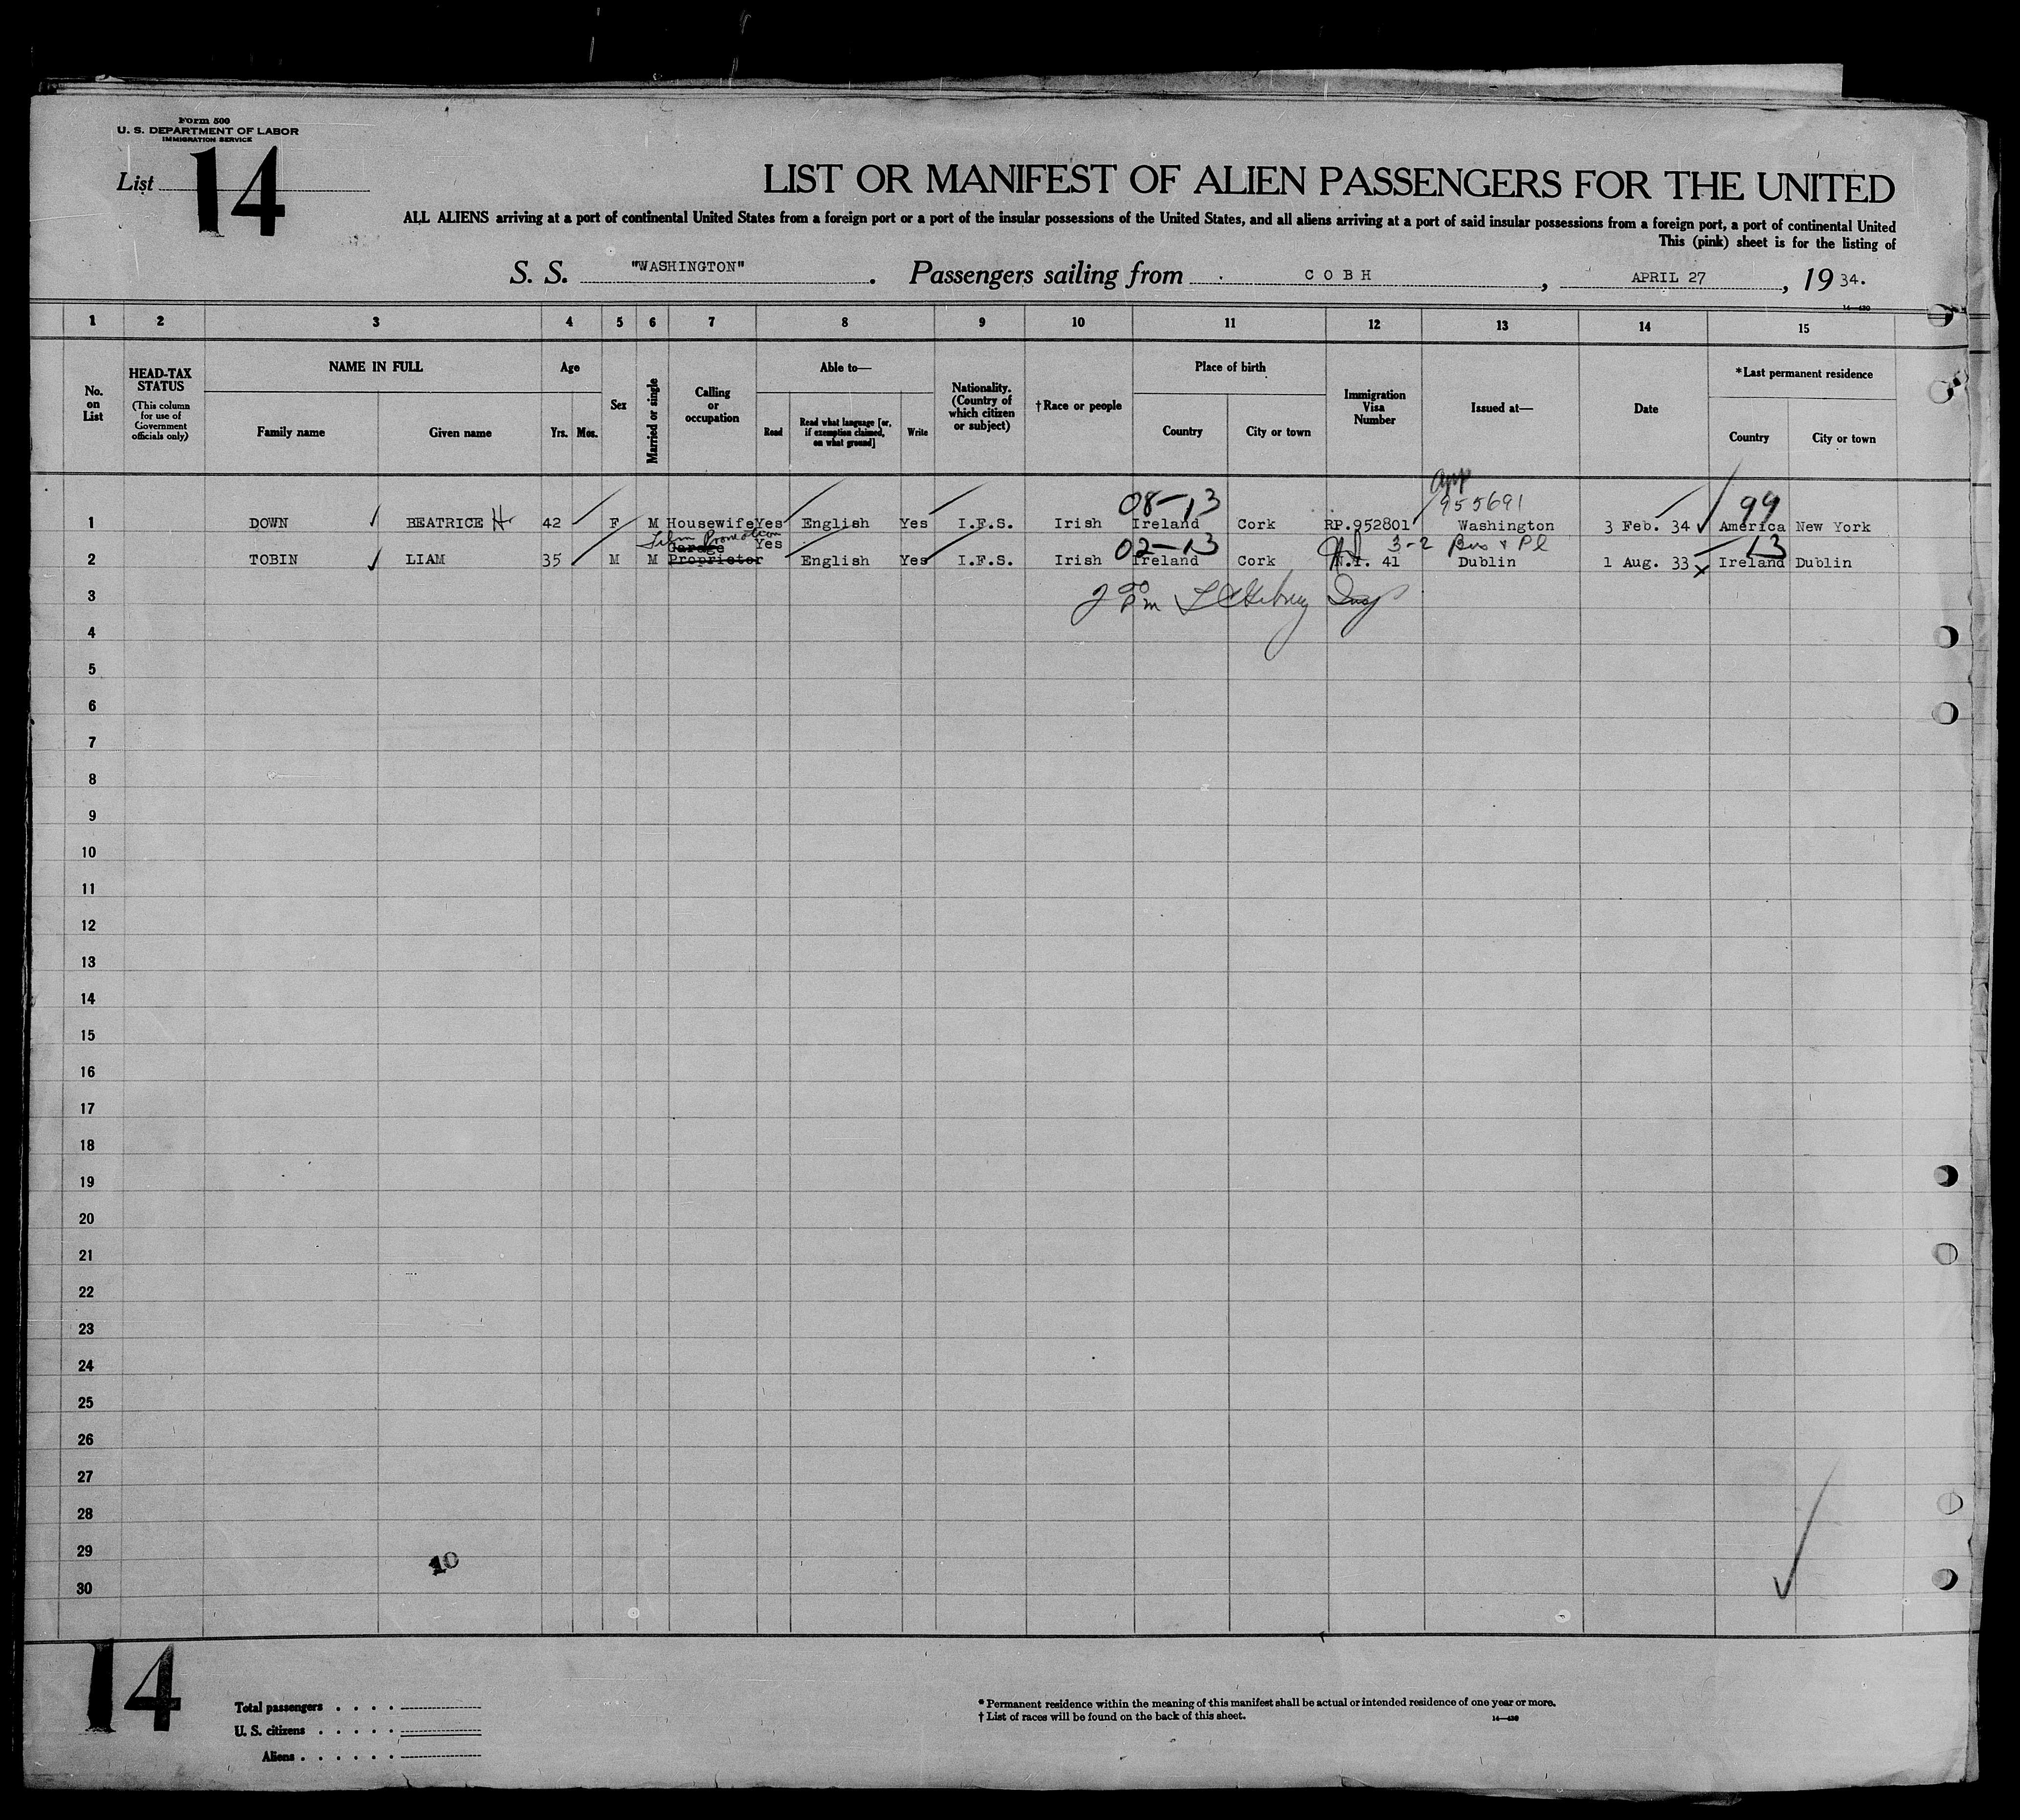 Form 500
U. S. DEPARTMENT OF LABOR
IMMIGRATION SERVICE
List 14
LIST OR MANIFEST OF ALIEN PASSENGERS FOR THE UNITED
ALL ALIENS arriving at a port of continental United States from a foreign port or a port of the insular possessions of the United States, and all aliens arriving at a port of said insular possessions from a foreign port, a port of continental United
This (pink) sheet is for the listing of
S. S. "WASHINGTON". Passengers sailing from COBH, APRIL 27, 1934.
14—430
1 2 3 4 5 6 7 8 9 10 11 12 13 14 15
No. on List
HEAD-TAX STATUS
(This column for use of Government officials only)
NAME IN FULL
Family name Given name
Age
Yrs. Mos.
Sex
Married or single
Calling or occupation
Able to—
Read
Read what language [or, if exemption claimed, on what ground]
Write
Nationality. (Country of which citizen or subject)
†Race or people
Place of birth
Country City or town
Immigration Visa Number
Issued at—
Date
*Last permanent residence
Country City or town
08-13 955691 99
1 DOWN BEATRICE H 42 F M Housewife Yes English Yes I.F.S. Irish Ireland Cork RP.952801 Washington 3 Feb. 34 America New York
Film Promotion 02-13 3-2 13
2 TOBIN LIAM 35 M M Garage Proprietor Yes English Yes I.F.S. Irish Ireland Cork 41 Dublin 1 Aug. 33 Ireland Dublin
3 2 00 Pm Insp
4
5
6
7
8
9
10
11
12
13
14
15
16
17
18
19
20
21
22
23
24
25
26
27
28
29
10
30
14
Total passengers . . . .
U. S. citizens . . . . .
Aliens . . . . . .
* Permanent residence within the meaning of this manifest shall be actual or intended residence of one year or more.
† List of races will be found on the back of this sheet.
14—430